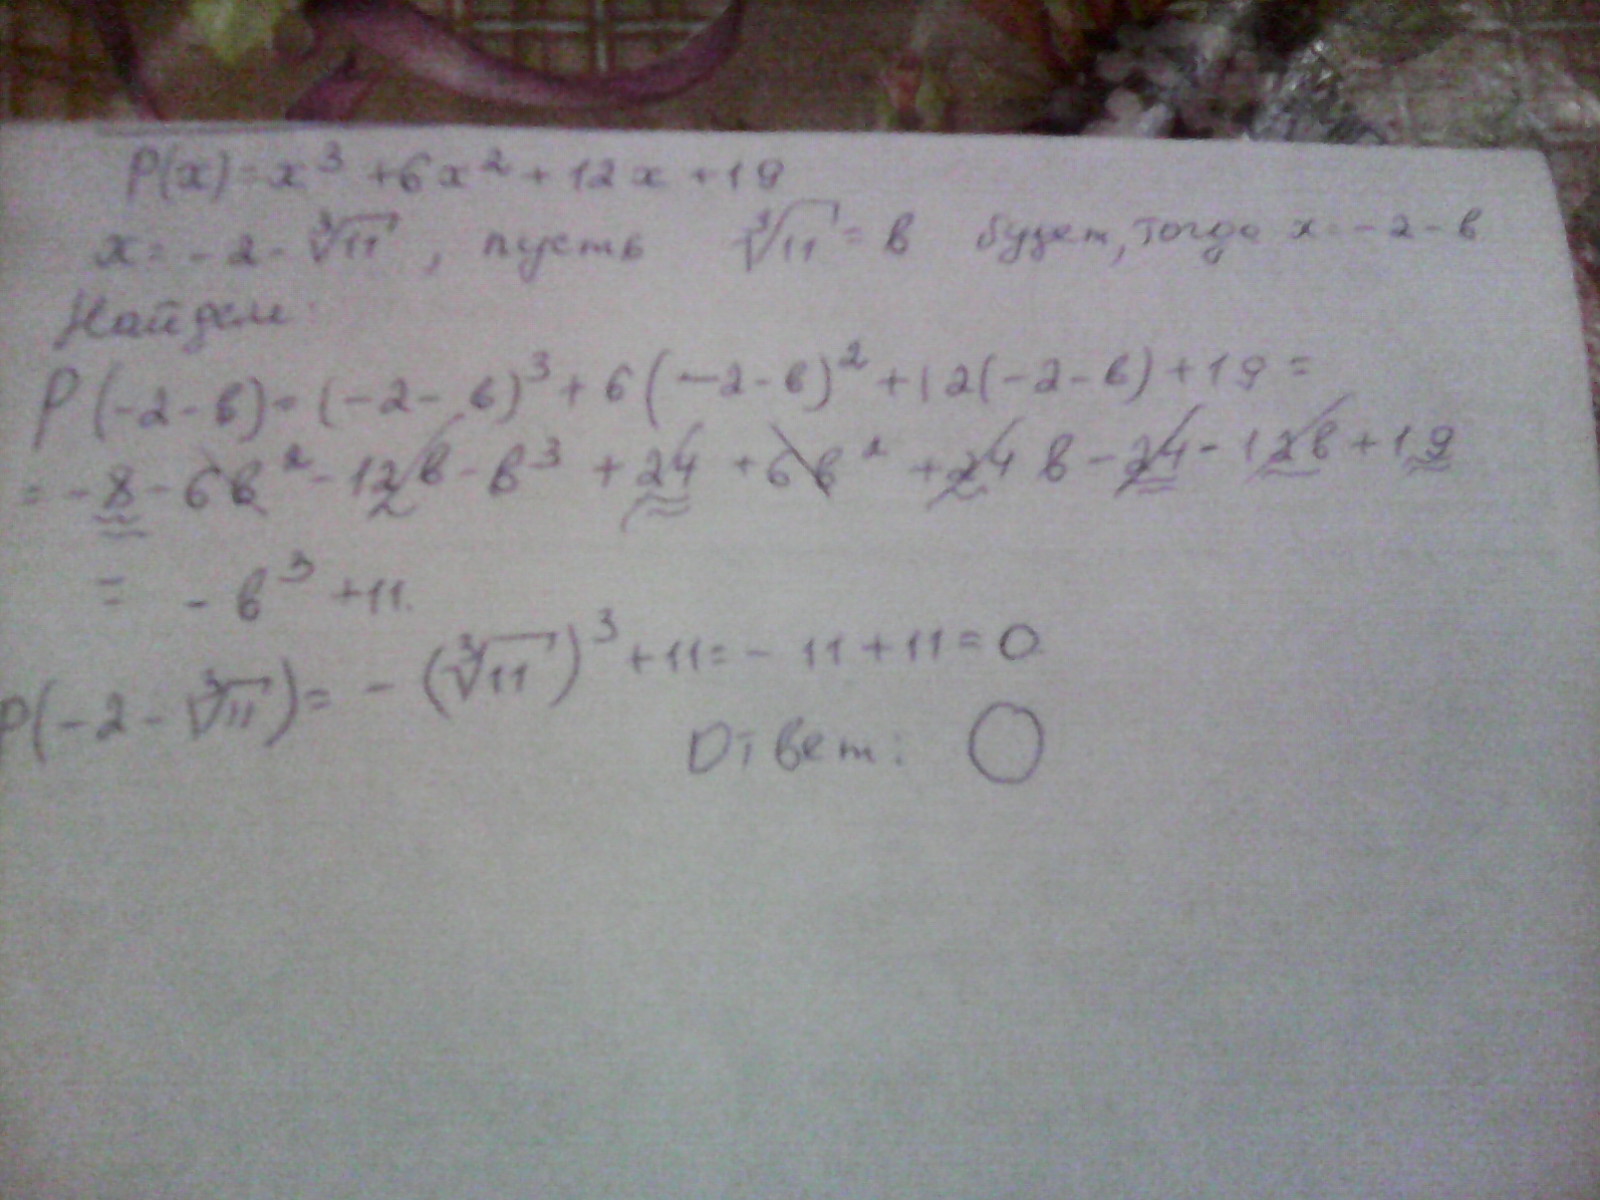 P(x)=x³+6x²+12x+19
x=-2-∛11, пусть ∛11=в будет, тогда x=-2-в
Найдем:
P(-2-в)=(-2-в)³+6(-2-в)²+12(-2-в)+19=
=-8-6в²-12в-в³+24+6в²+24в-24-12в+19
= -в³+11.
P(-2-∛11)=-(∛11)³+11=-11+11=0
Ответ: 0